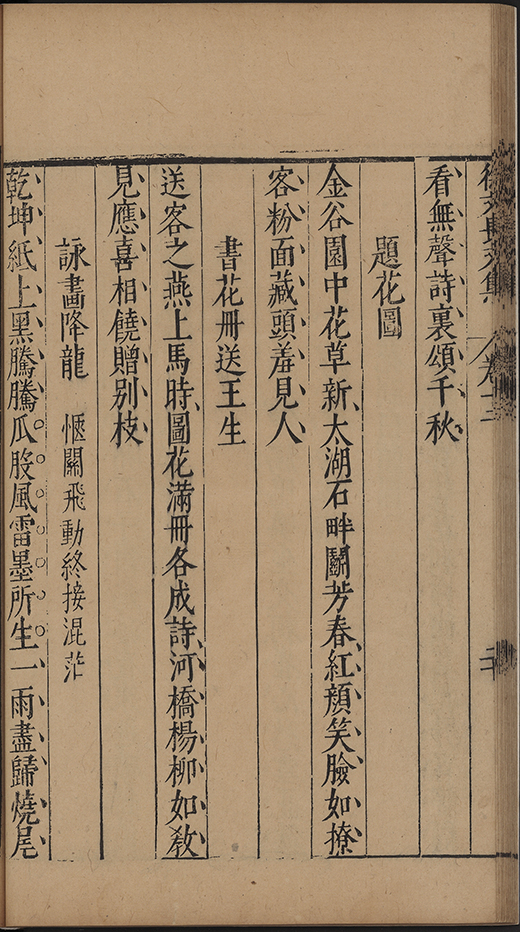 徐文長文集 卷十二 二十
看無聲詩裏頌千秋
題花圖
金谷園中花草新太湖石畔鬭芳春紅顏笑臉如撩
客粉面藏頭羞見人
書花冊送王生
送客之燕上馬時圖花滿冊各成詩河橋楊柳如教
見應喜相饒贈別枝
詠畫降龍 愜關飛動終接混茫
乾坤紙上黑騰騰瓜股風雷墨所生一雨盡歸燒尾